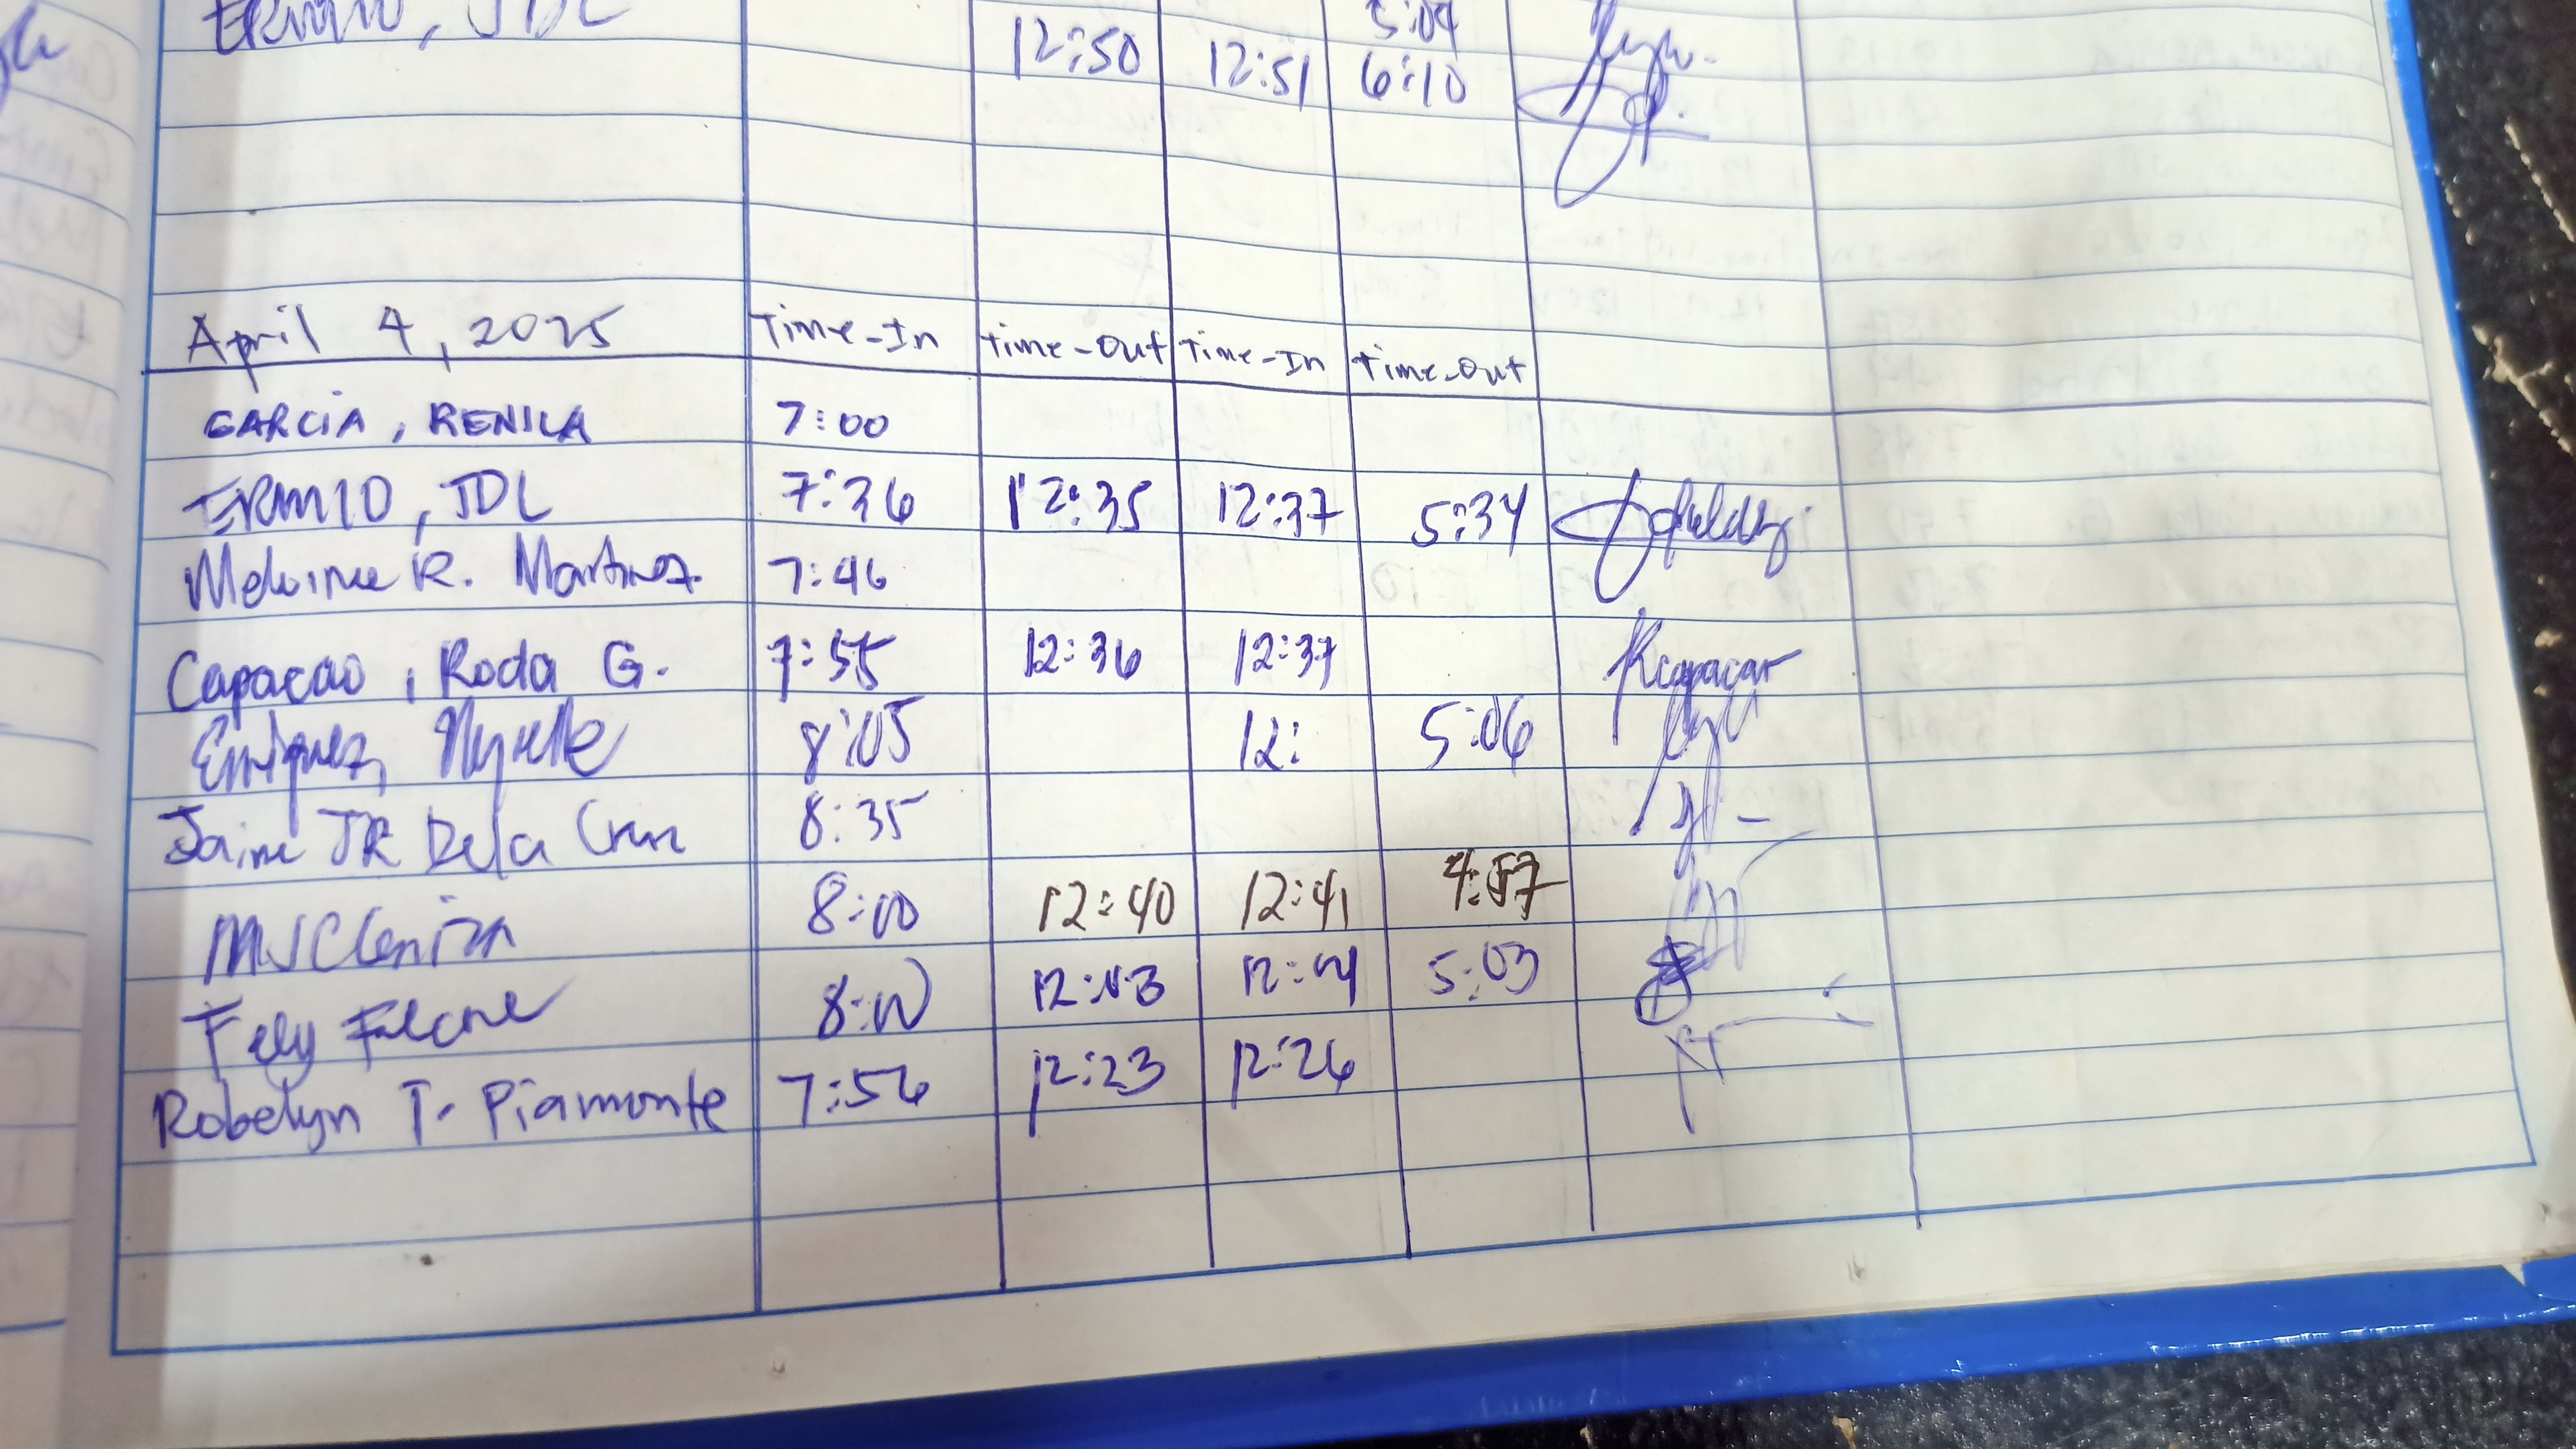 ERMIO, JDL 5:04
12:50 12:51 6:10
April 4, 2025 Time-In Time-Out Time-In Time-Out
GARCIA, RENILA 7:00
ERMIO, JDL 7:36 12:35 12:37 5:34
Melvinne R. Martinez 7:46
Capacao, Roda G. 7:55 12:36 12:37 Rcapacao
Enriquez, Myrelle 8:05 12: 5:06
Jaime JR Dela Cruz 8:35
MJCleniza 8:00 12:40 12:41 4:57
Fely Falcone 8:00 12:43 12:44 5:03
Robelyn T. Piamonte 7:56 12:23 12:26